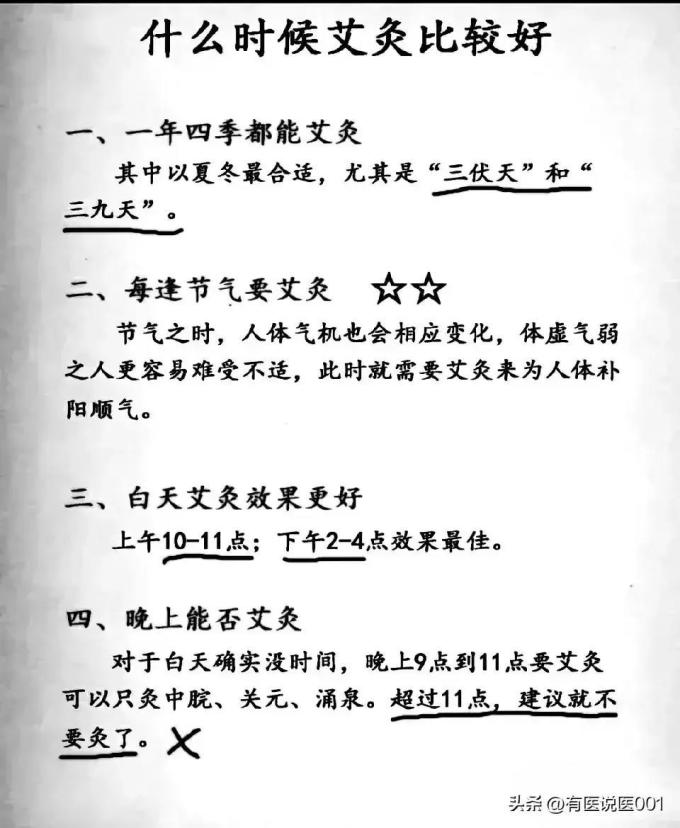 什么时候艾灸比较好
一、一年四季都能艾灸
其中以夏冬最合适，尤其是“三伏天”和“
三九天”。
二、每逢节气要艾灸 ☆☆
节气之时，人体气机也会相应变化，体虚气弱
之人更容易难受不适，此时就需要艾灸来为人体补
阳顺气。
三、白天艾灸效果更好
上午10-11点；下午2-4点效果最佳。
四、晚上能否艾灸
对于白天确实没时间，晚上9点到11点要艾灸
可以只灸中脘、关元、涌泉。超过11点，建议就不
要灸了。
头条 @有医说医001